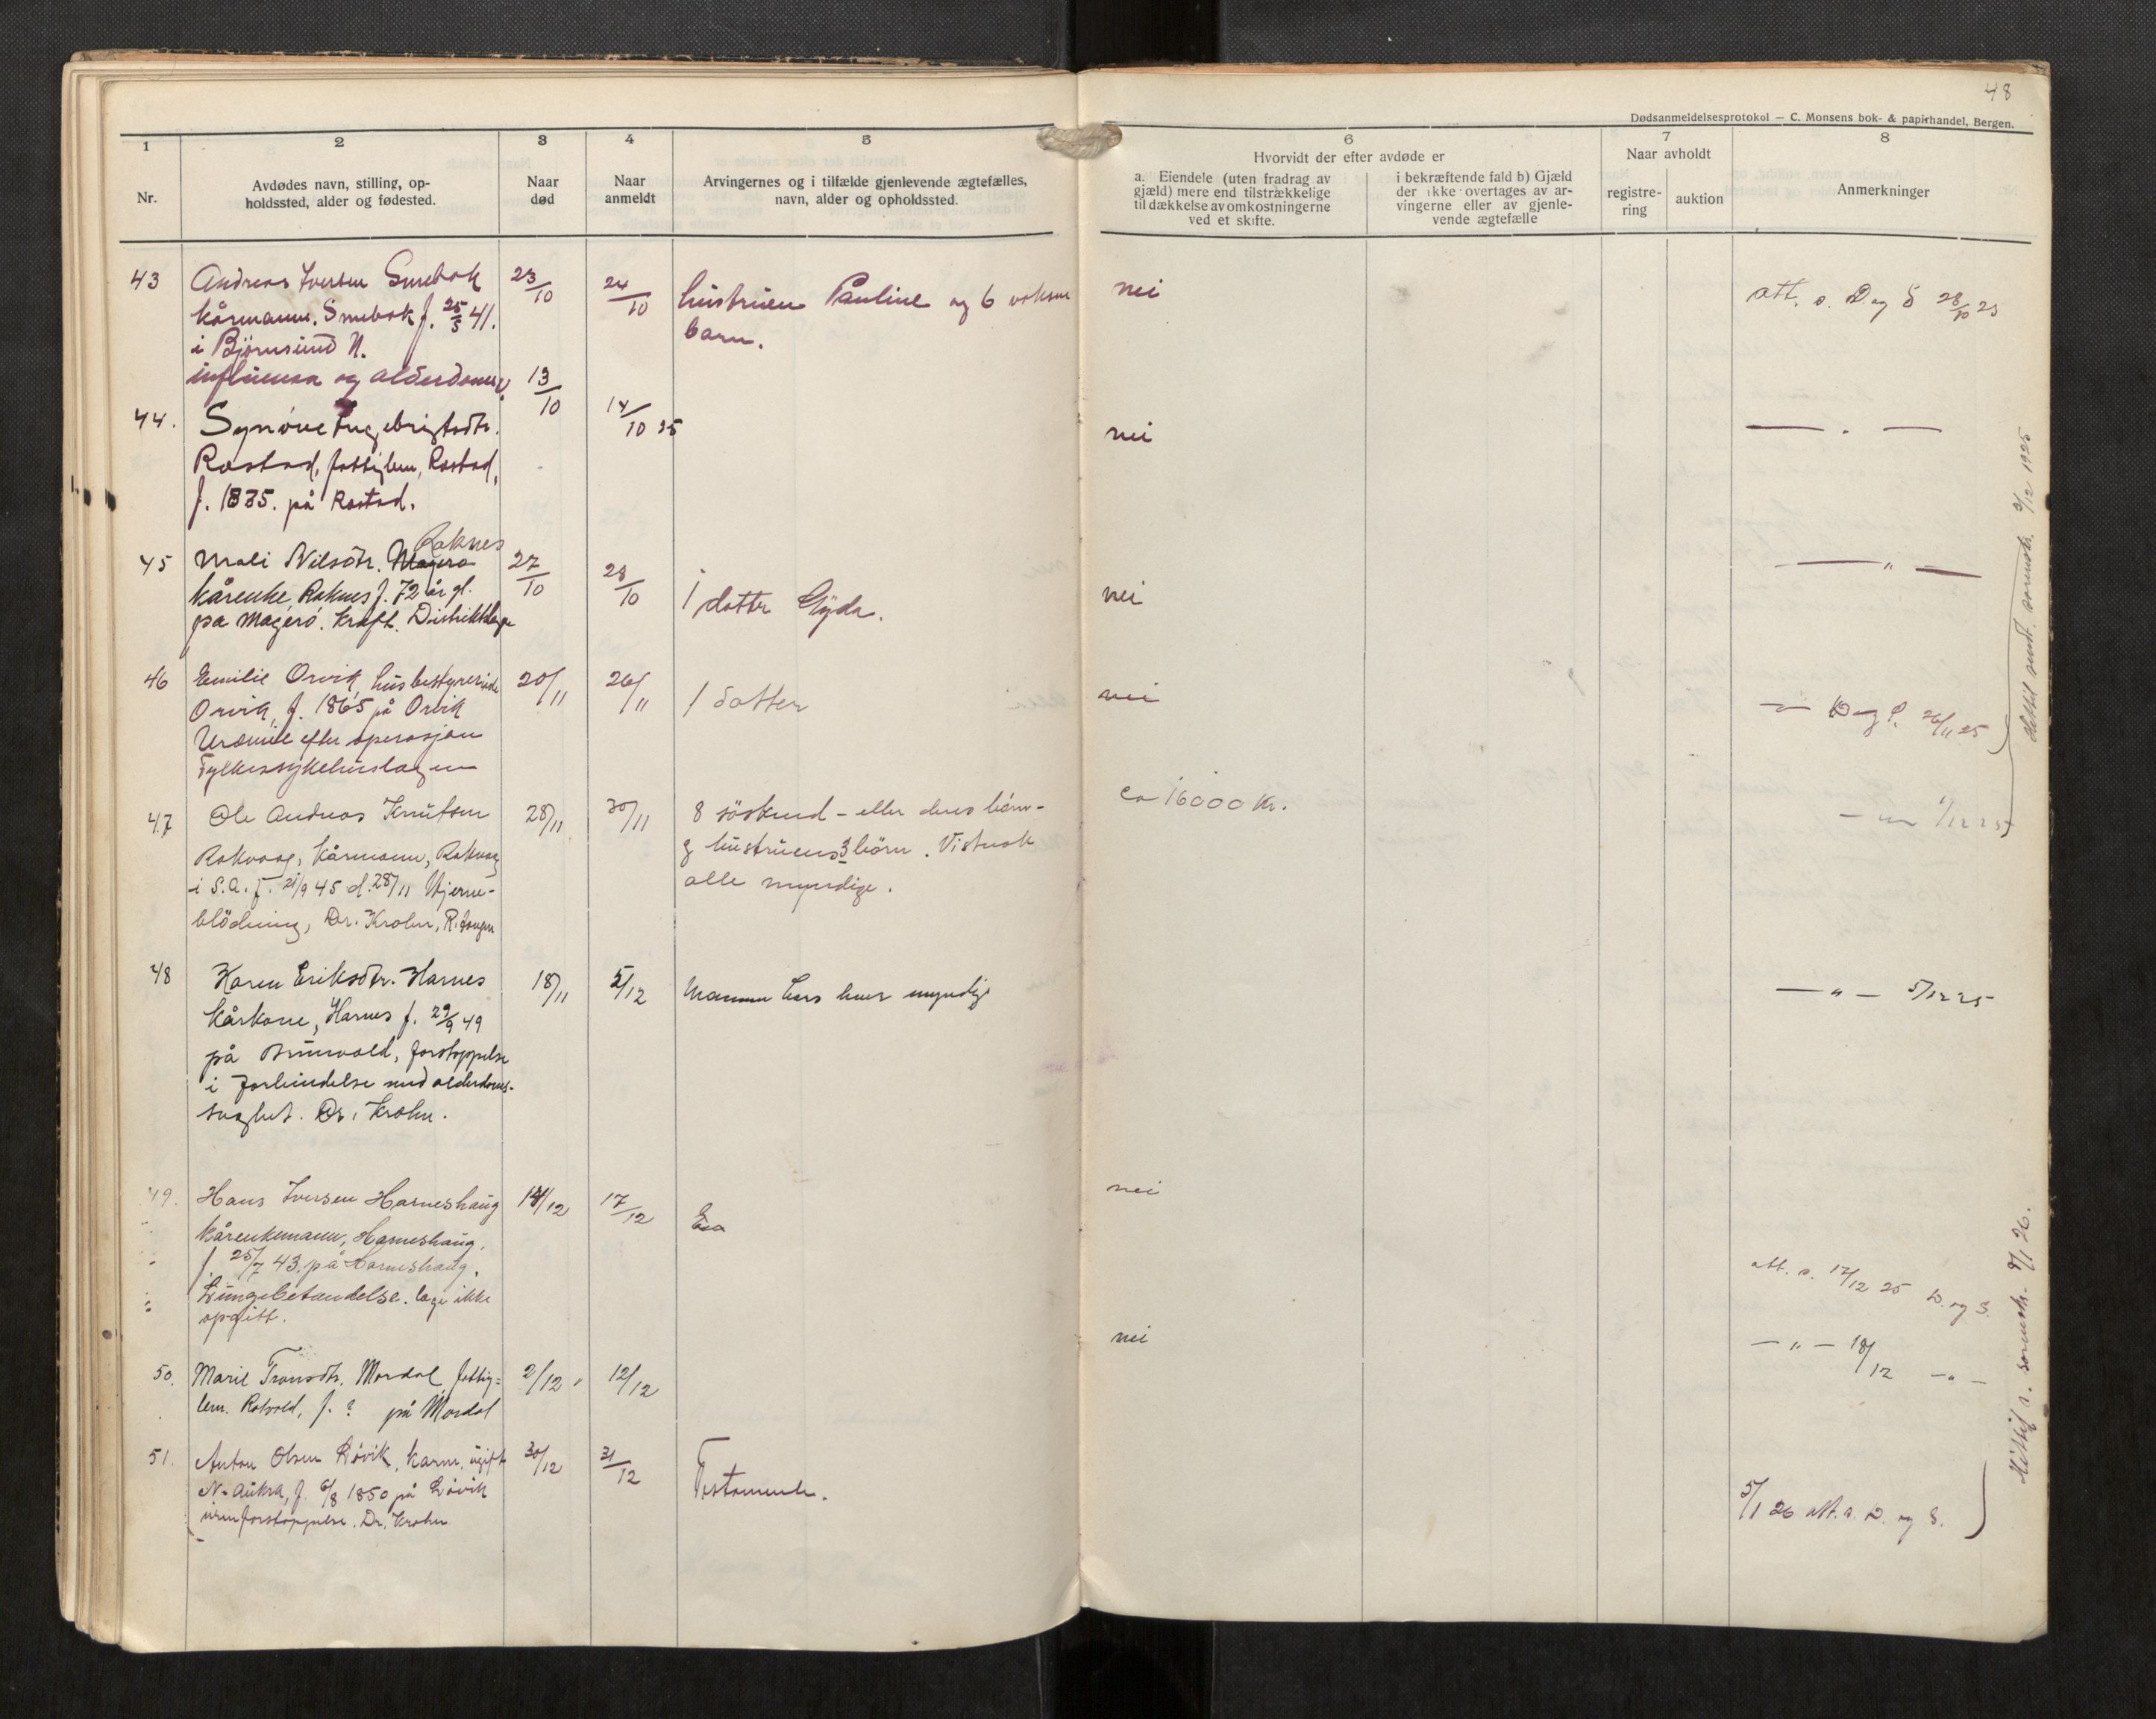 48
Dødsanmeldelsesprotokol — C. Monsens bok- & papirhandel, Bergen.
1 2 3 4 5 6 7 8
Nr.
Avdødes navn, stilling, op-
holdssted, alder og fødested.
Naar
død
Naar
anmeldt
Arvingernes og i tilfælde gjenlevende ægtefælles,
navn, alder og opholdssted.
Hvorvidt der efter avdøde er
a. Eiendele (uten fradrag av
gjæld) mere end tilstrækkelige
til dækkelse av omkostningerne
ved et skifte.
i bekræftende fald b) Gjæld
der ikke overtages av ar-
vingerne eller av gjenle-
vende ægtefælle
Naar avholdt
registre-
ring
auktion
Anmerkninger
43 Andreas Iversen Smebak 23/10 24/10 hustruen Pauline og 6 voksne nei att. s. D og S 28/10 25
kårmann, Smebak f. 25/5 41. barn.
i Bjørnsund N.
influensa og alderdom
44. Synöve Ingebrigtsdtr. 13/10 14/10 25 nei — " —
Rostad, fattiglem, Rostad,
f. 1835. på Rostad.
45 Mali Nilsdtr. Magerø Raknes 27/10 28/10 1 datter Gyda. nei — " —
kårenke, Raknes f. 72 år gl.
på Magerö. Kreft. Distriktslege
46 Emilie Orvik, husbestyrerinde 20/11 26/11 1 datter nei — " — D og S. 26/11 25
Orvik, f. 1865 på Orvik
Urœmie efter operasjon
Fylkessykehuslægen
47 Ole Andreas Knutsen 28/11 30/11 8 söskend - eller deres börn - ca 16000 Kr. — " — 1/12 25
Rakvaag, kårmann, Rakvaag og hustruens 3 börn. Vistnok
i S.A. f. 21/9 45 d. 28/11 Hjerne- alle myndige.
blödning, Dr. Krohn,
48 Karen Eriksdtr. Harnes 18/11 5/12 myndige — " — 5/12 25
kårkone, Harnes f. 29/9 49
på forstoppelse
i forbindelse med alderdoms-
svaghet. Dr. Krohn.
49. Hans Iversen Harneshaug 14/12 17/12 nei
kårenkemann, Harneshaug,
f. 25/7 43. på Harneshaug, att. s. 17/12 25 D. og S.
Lungebetendelse. læge ikke
opgitt.
50. Marie Tronsdtr. Mordal fattig= 2/12 12/12 nei — " — 18/12 — " —
lem. f. ? på Mordal
51. Anton Olsen Løvik, kårm. ugift 30/12 31/12 Testamente.
N-Aukra, f. 6/8 1850 på Løvik 5/1 26 att. s. D. og S.
forstoppelse. Dr. Krohn
sendt sorenskr. 3/12 1925
s. sorenskr. 9/1 26.